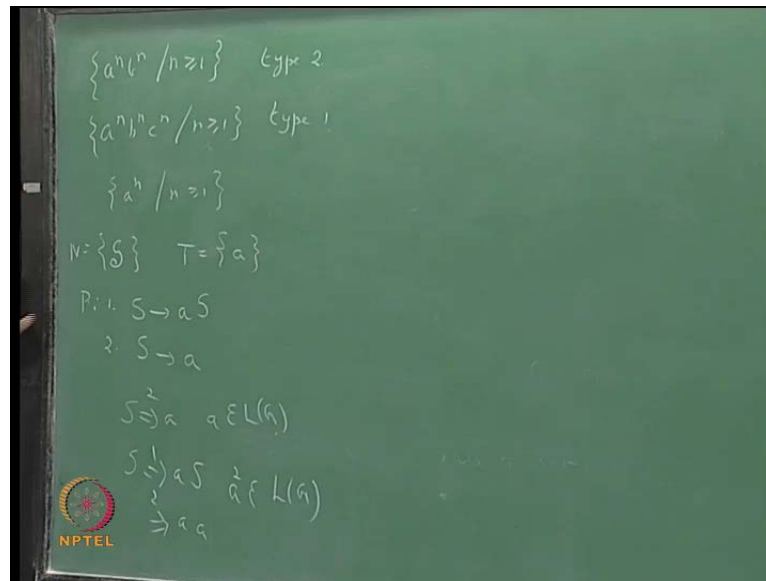 {aⁿbⁿ / n ≥ 1} type 2
{aⁿbⁿcⁿ / n ≥ 1} type 1
{aⁿ / n ≥ 1}
N = {S} T = {a}
P: 1. S → aS
2. S → a
S ⇒² a a ∈ L(G)
S ⇒¹ aS a² ∈ L(G)
⇒² aa
NPTEL